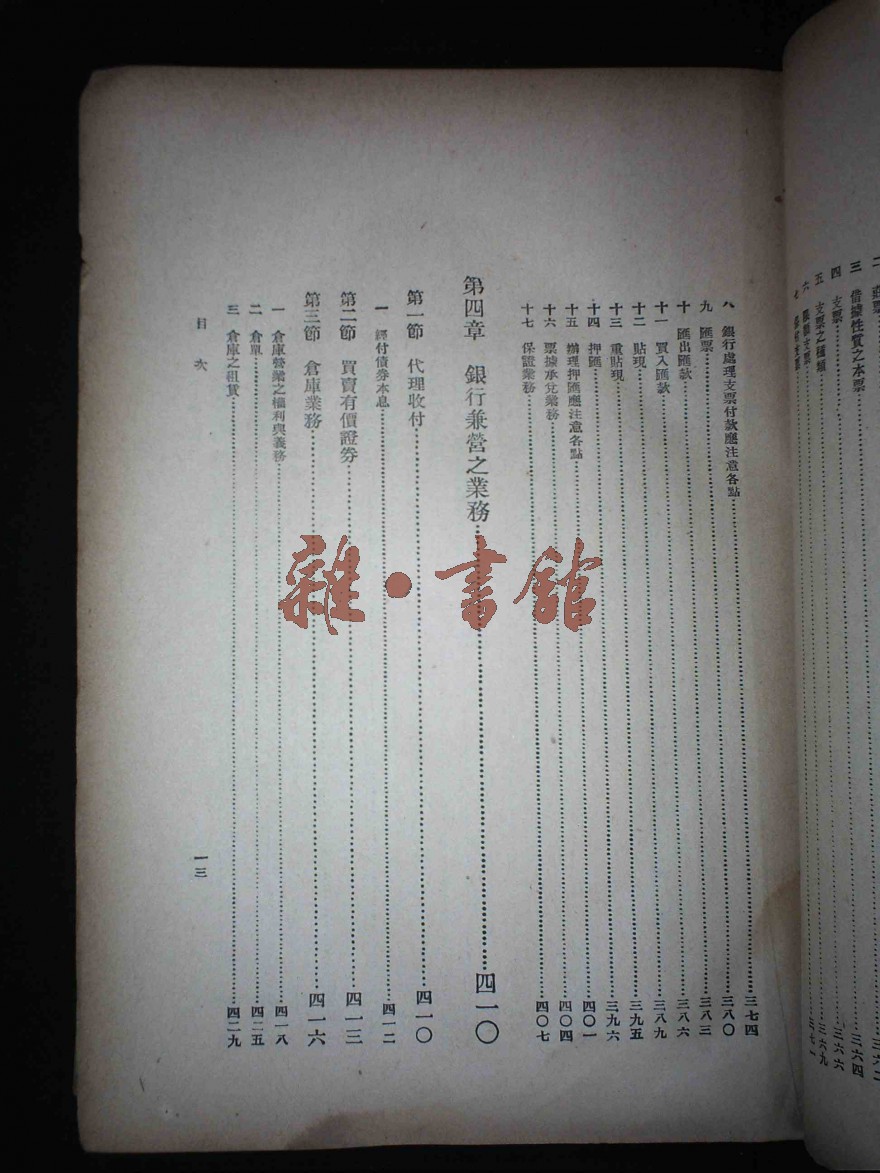 三 借據性質之本票……三六四
四 支票……三六六
五 支票之種類……三六九
八 銀行處理支票付款應注意各點……三七四
九 匯票……三八〇
十 匯出匯款……三八三
十一 買入匯款……三八六
十二 貼現……三八九
十三 重貼現……三九五
十四 押匯……三九六
十五 辦理押匯應注意各點……四〇一
十六 票據承兌業務……四〇四
十七 保證業務……四〇七
第四章 銀行兼營之業務……四一〇
第一節 代理收付……四一〇
一 經付債券本息……四一二
第二節 買賣有價證券……四一三
第三節 倉庫業務……四一六
一 倉庫營業之權利與義務……四一八
二 倉單……四二五
三 倉庫之租賃……四二九
目次 一三
雜·書館